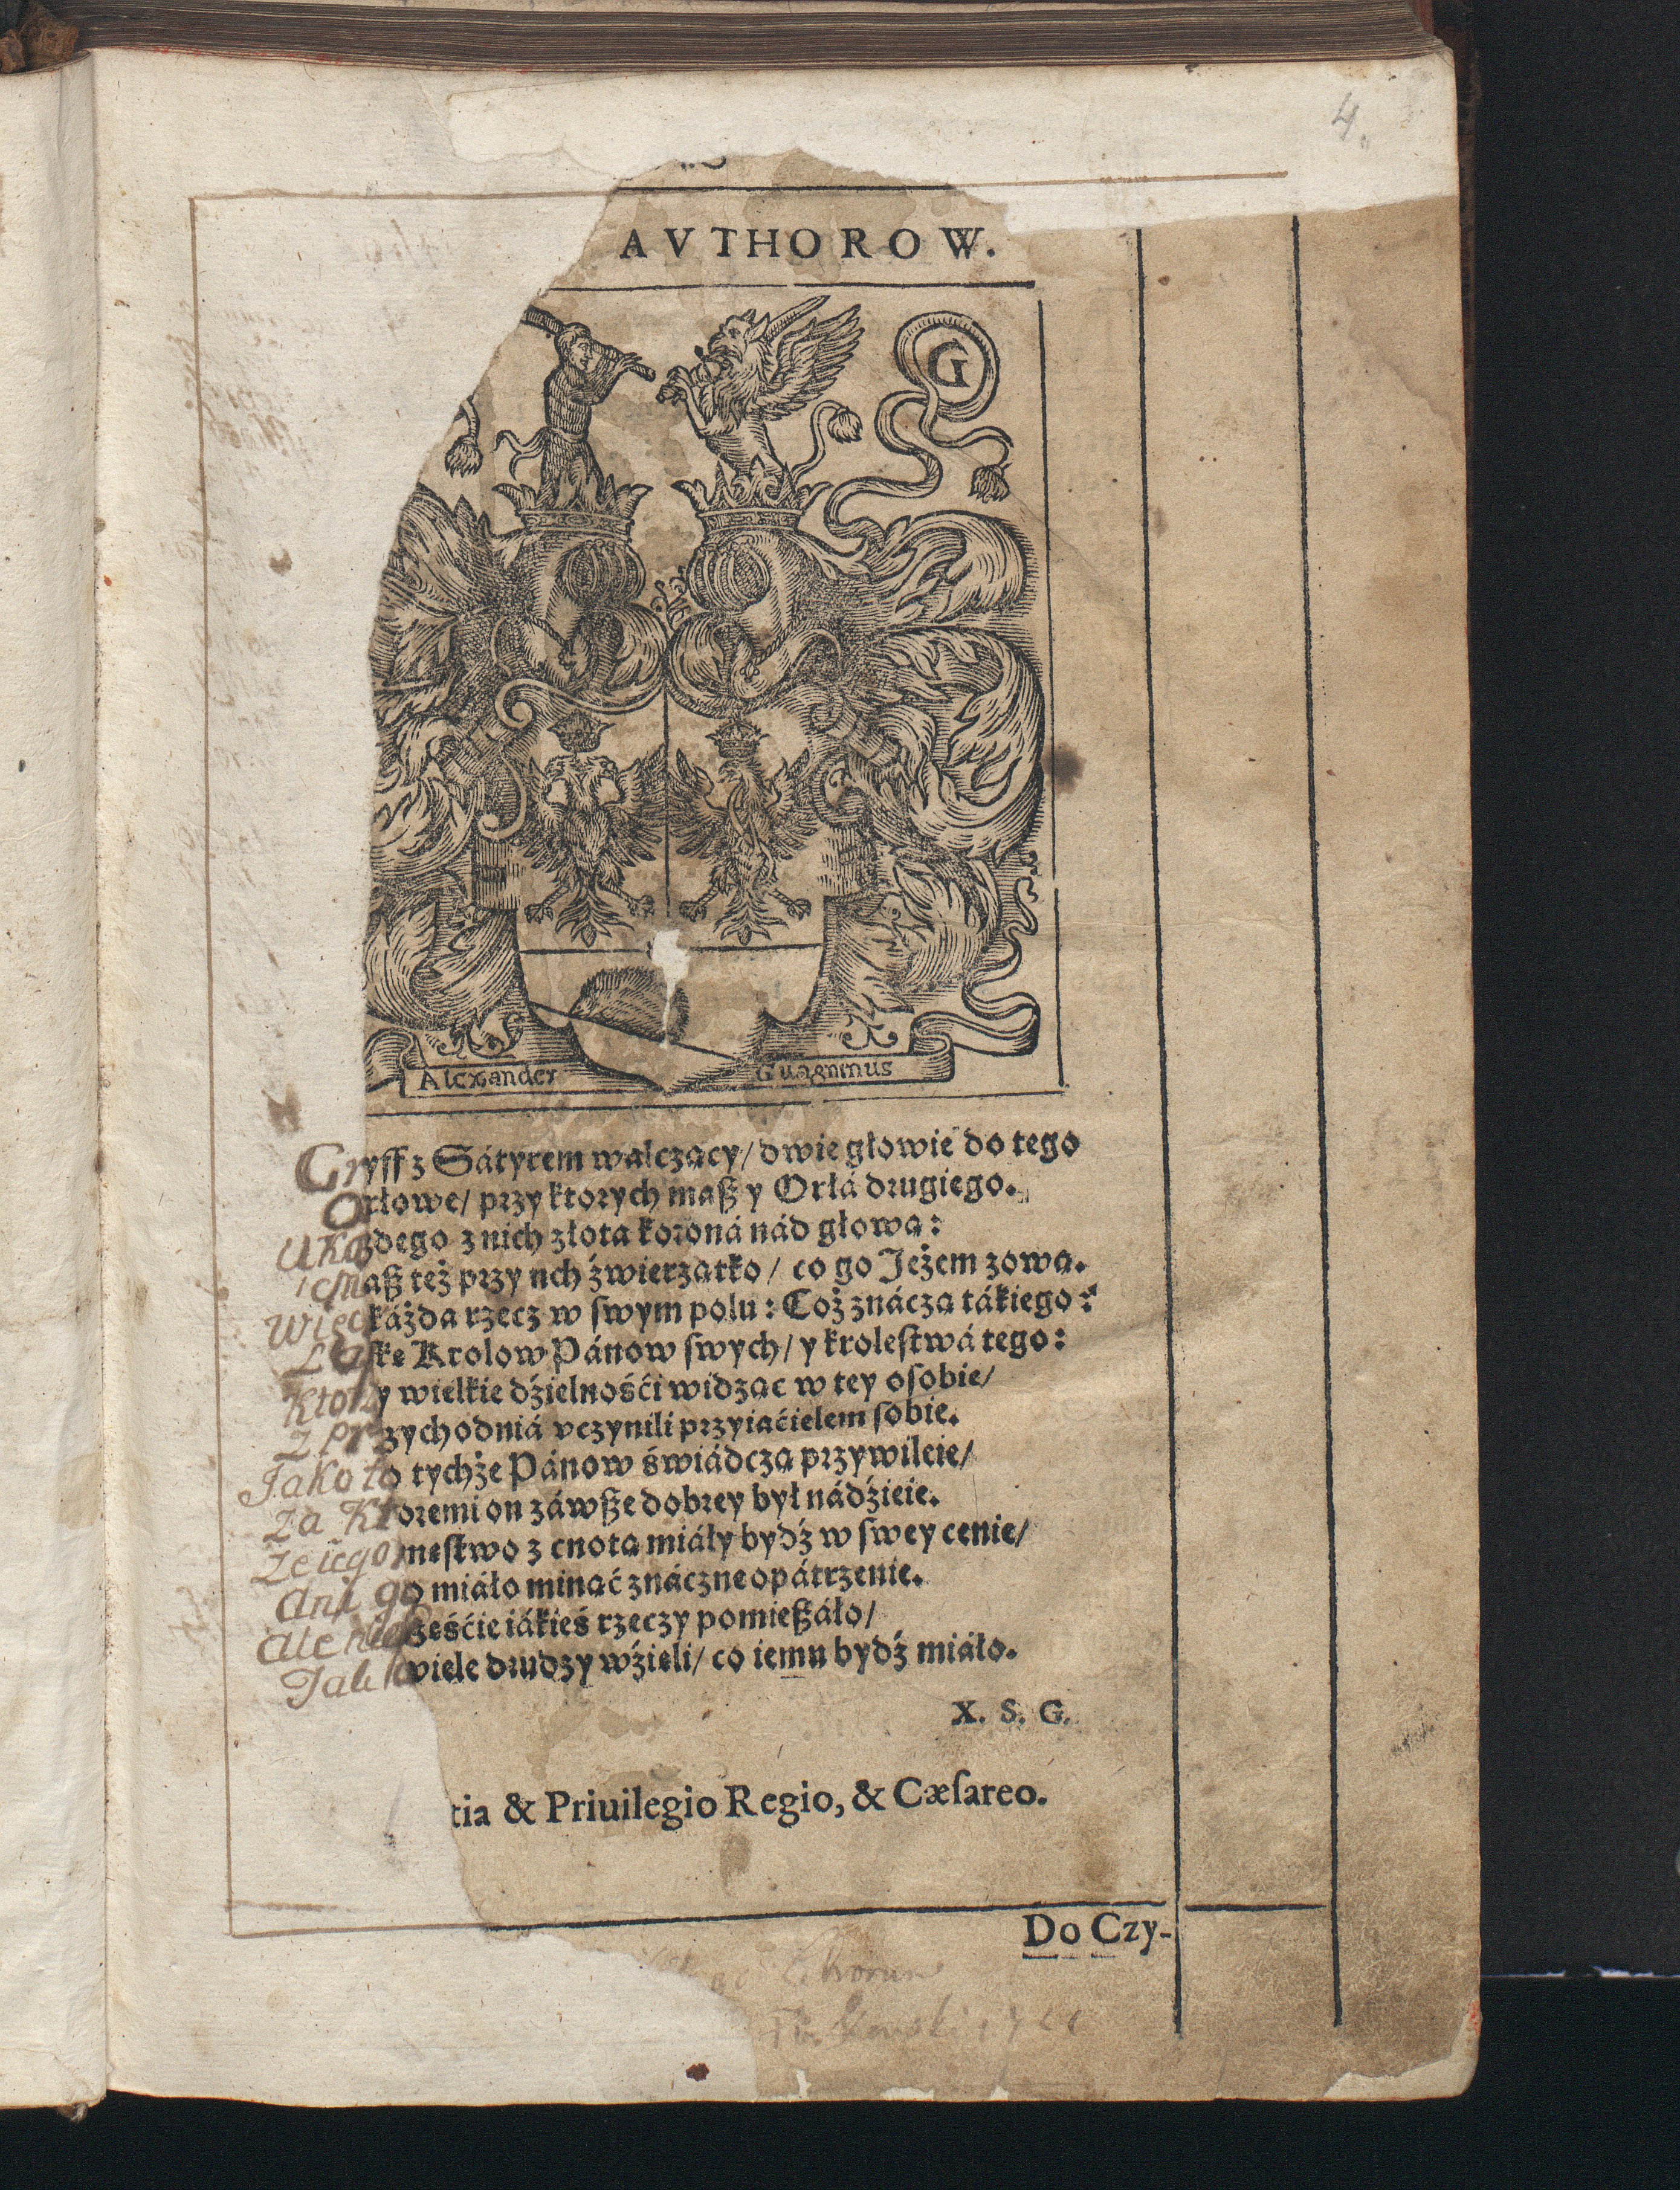 4.
AVTHOROW.
G
Alexander Guagninus
Gryff z Sátyrem walczący/ dwie głowie do tego
Orłowe/ przy ktorych maß y Orłá drugiego.
U każdego z nich złota koroná nád głową:
Maß też przy nich źwierzątko/ co go Jeżem zową.
Więc káżda rzecz w ſwym polu: Coż znáczą tákiego:
Łáſkę Krolow Pánow ſwych/ y kroleſtwá tego:
Ktorzy wielkie dźielnośći widząc w tey oſobie/
Z przychodniá vczynili przyiaćielem ſobie.
Jako to tychże Pánow świádczą przywileie/
Za ktoremi on záwße dobrey był nádźieie.
Że iego męſtwo z cnotą miáły bydź w ſwey cenie/
Ani go miáło minąć znáczne opátrzenie.
Ale nießeśćie iákieś rzeczy pomießáło/
wiele drudzy wźięli/ co iemu bydź miáło.
X. S. G.
tia & Priuilegio Regio, & Cæſareo.
Do Czy-